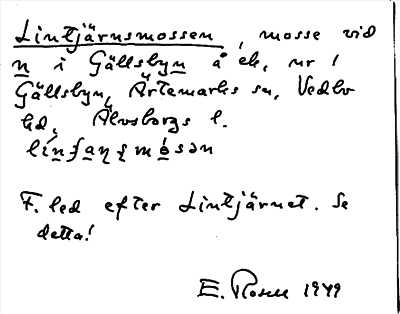 Lintjärnsmossen, mosse vid
n i Gällsbyn å ek, nr 1
Gällsbyn, Ärtemarks sn, Vedbo
hd, Älvsborgs l.
F. led efter Lintjärnet. Se
detta!
E. Rosell 1949